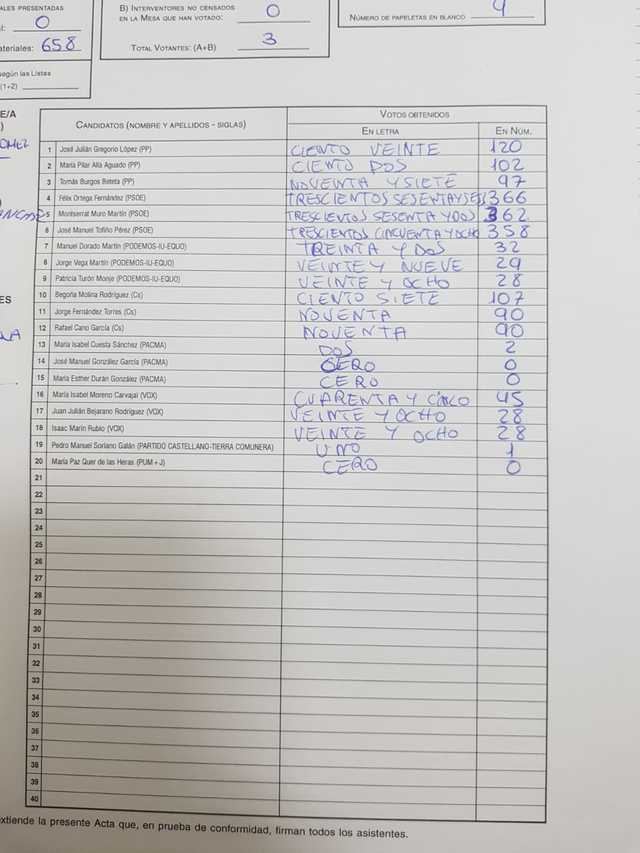 ALES PRESENTADAS
0
ateriales: 658
según las Listas
(1+2)
B) INTERVENTORES NO CENSADOS
EN LA MESA QUE HAN VOTADO: 0
TOTAL VOTANTES: (A+B) 3
NÚMERO DE PAPELETAS EN BLANCO 4
E/A
ES
CANDIDATOS (NOMBRE Y APELLIDOS - SIGLAS) VOTOS OBTENIDOS
EN LETRA EN NÚM.
1 José Julián Gregorio López (PP) CIENTO VEINTE 120
2 María Pilar Alía Aguado (PP) CIENTO DOS 102
3 Tomás Burgos Beteta (PP) NOVENTA Y SIETE 97
4 Félix Ortega Fernández (PSOE) TRESCIENTOS SESENTA Y SEIS 366
5 Montserrat Muro Martín (PSOE) TRESCIENTOS SESENTA Y DOS 362
6 José Manuel Tofiño Pérez (PSOE) TRESCIENTOS CINCUENTA Y OCHO 358
7 Manuel Dorado Martín (PODEMOS-IU-EQUO) TREINTA Y DOS 32
8 Jorge Vega Martín (PODEMOS-IU-EQUO) VEINTE Y NUEVE 29
9 Patricia Turón Monje (PODEMOS-IU-EQUO) VEINTE Y OCHO 28
10 Begoña Molina Rodríguez (Cs) CIENTO SIETE 107
11 Jorge Fernández Torres (Cs) NOVENTA 90
12 Rafael Cano García (Cs) NOVENTA 90
13 María Isabel Cuesta Sánchez (PACMA) DOS 2
14 José Manuel González García (PACMA) CERO 0
15 María Esther Durán González (PACMA) CERO 0
16 María Isabel Moreno Carvajal (VOX) CUARENTA Y CINCO 45
17 Juan Julián Bejarano Rodríguez (VOX) VEINTE Y OCHO 28
18 Isaac Marín Rubio (VOX) VEINTE Y OCHO 28
19 Pedro Manuel Soriano Galán (PARTIDO CASTELLANO-TIERRA COMUNERA) UNO 1
20 María Paz Quer de las Heras (PUM + J) CERO 0
21
22
23
24
25
26
27
28
29
30
31
32
33
34
35
36
37
38
39
40
xtiende la presente Acta que, en prueba de conformidad, firman todos los asistentes.